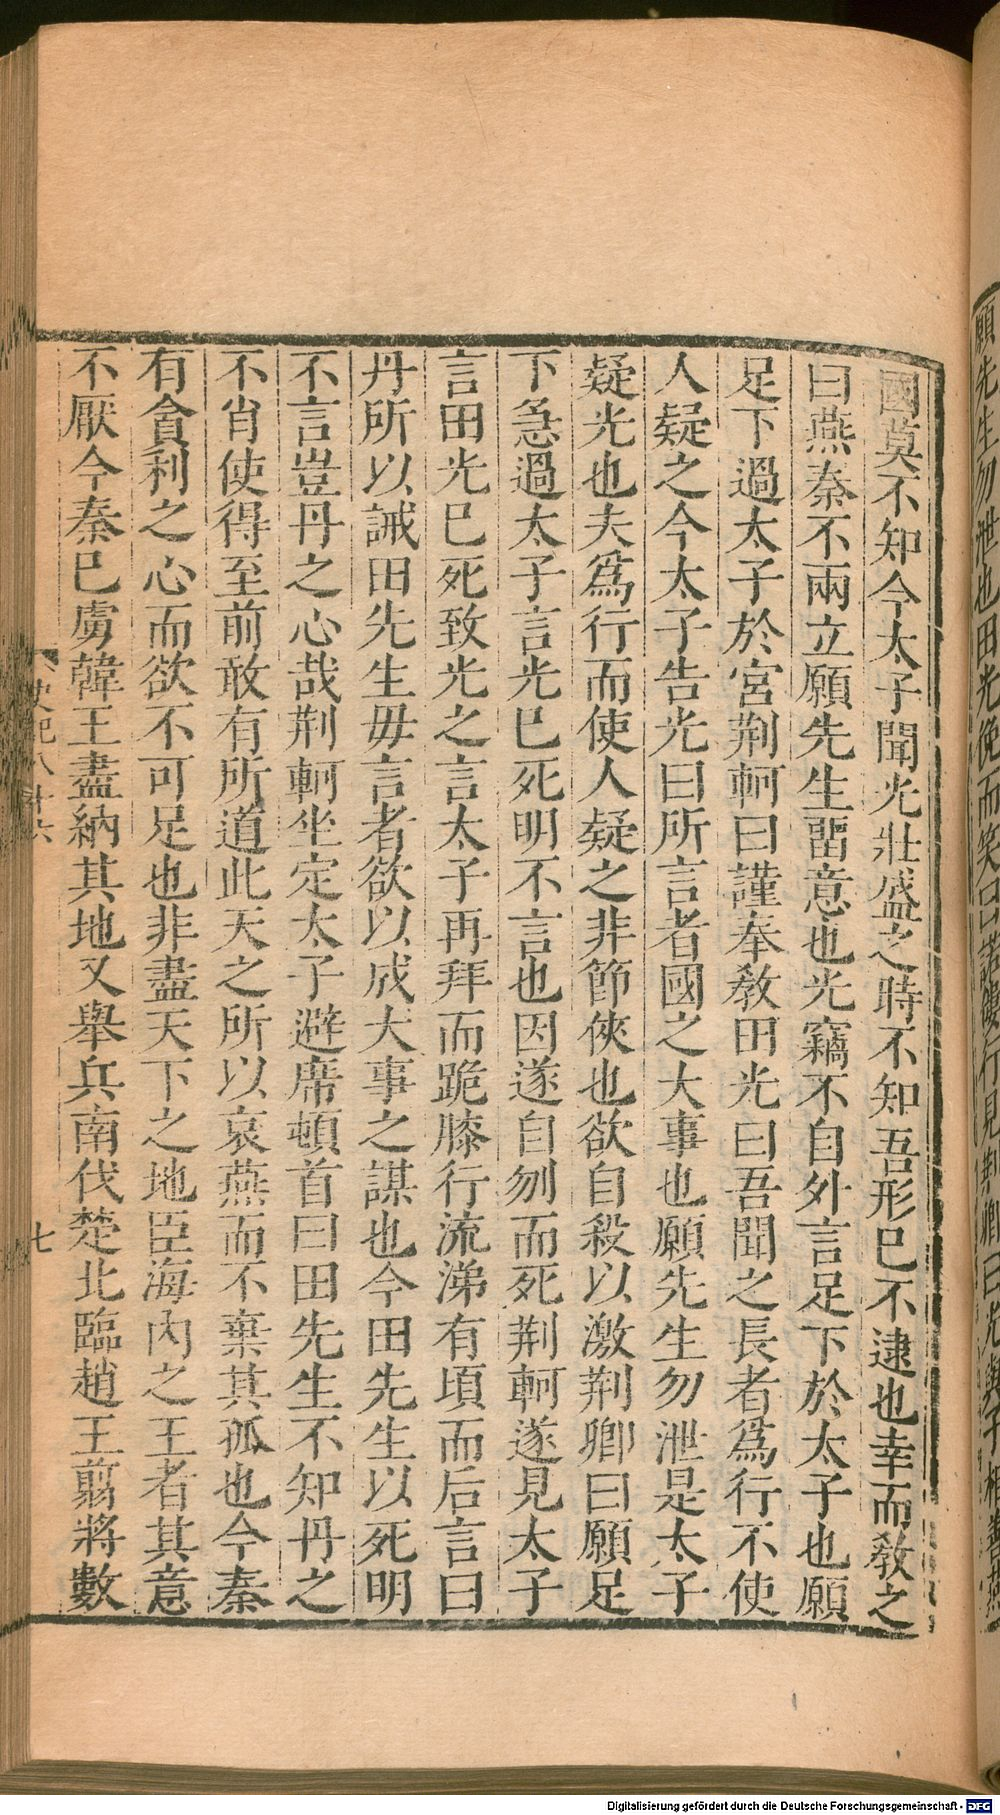 願先生勿泄也田光俛而笑曰諾僂行見荆卿曰光與子相善燕
國莫不知今太子聞光壯盛之時不知吾形已不逮也幸而敎之
曰燕秦不兩立願先生畱意也光竊不自外言足下於太子也願
足下過太子於宮荆軻曰謹奉敎田光曰吾聞之長者爲行不使
人疑之今太子告光曰所言者國之大事也願先生勿泄是太子
疑光也夫爲行而使人疑之非節俠也欲自殺以激荆卿曰願足
下急過太子言光已死明不言也因遂自刎而死荆軻遂見太子
言田光已死致光之言太子再拜而跪膝行流涕有頃而后言曰
丹所以誡田先生毋言者欲以成大事之謀也今田先生以死明
不言豈丹之心哉荆軻坐定太子避席頓首曰田先生不知丹之
不肖使得至前敢有所道此天之所以哀燕而不棄其孤也今秦
有貪利之心而欲不可足也非盡天下之地臣海內之王者其意
不厭今秦已虜韓王盡納其地又舉兵南伐楚北臨趙王翦將數
史記八十六
七
Digitalisierung gefördert durch die Deutsche Forschungsgemeinschaft - DFG